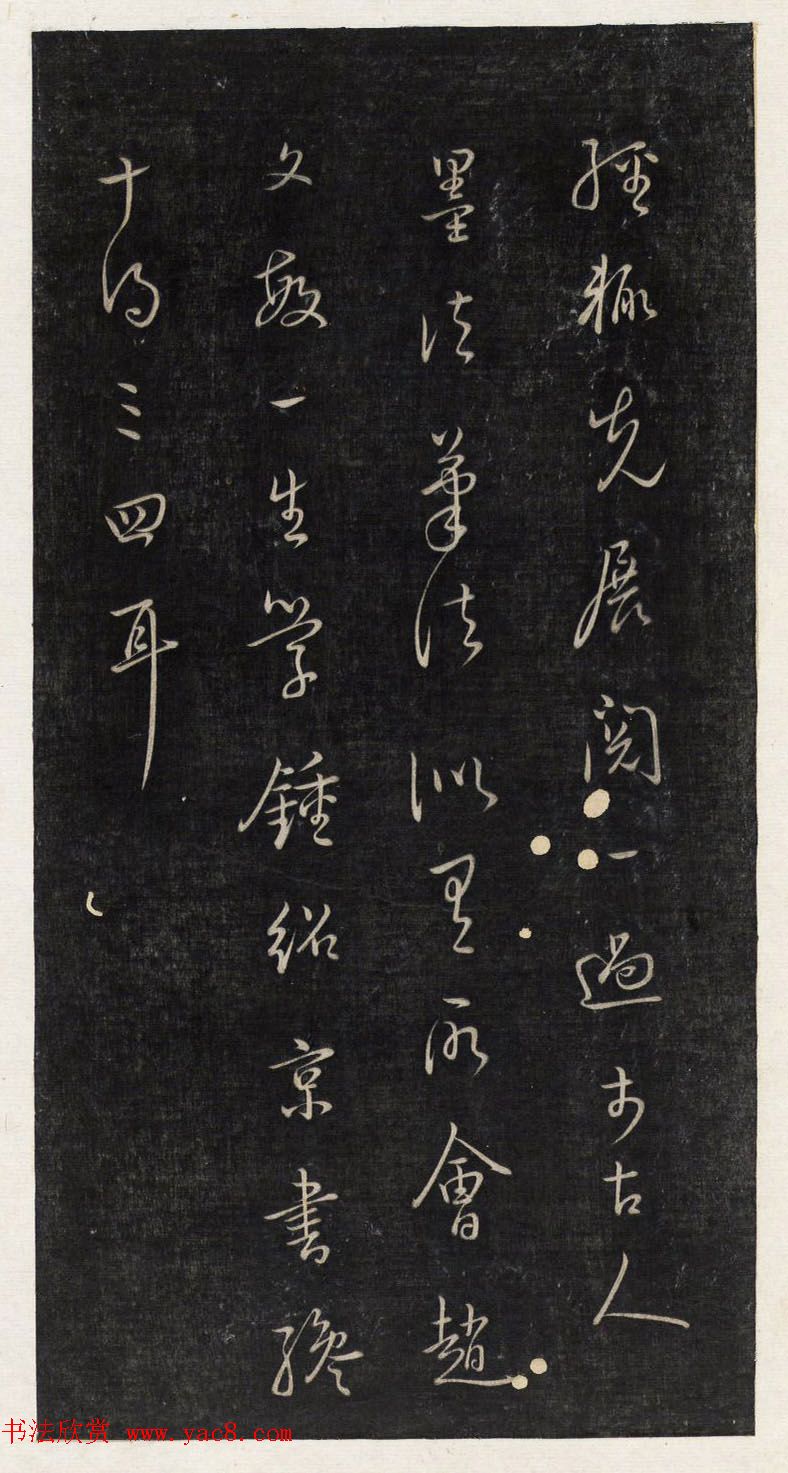 經輒先展閱一過於古人
墨法筆法似有所會趙
文敏一生學鍾紹京書纔
十得三四耳
书法欣赏 www.yac8.com